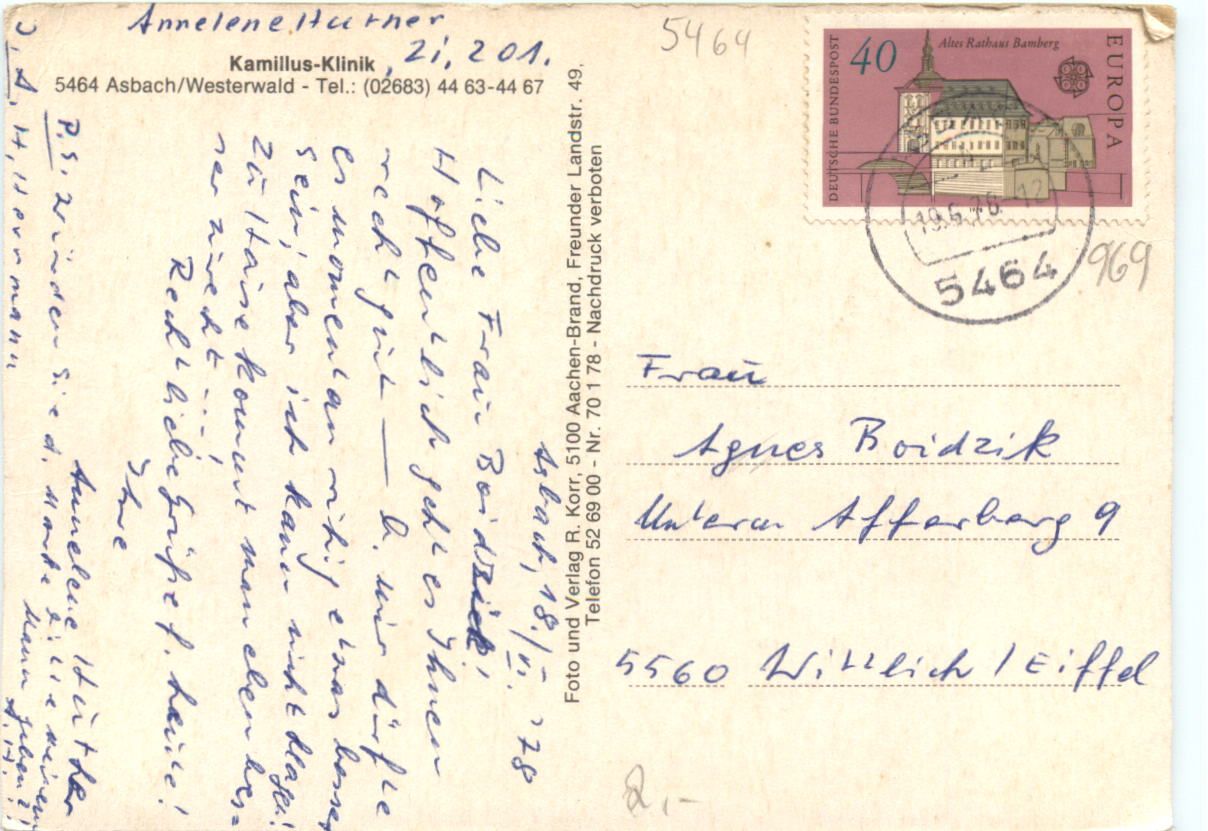 Annelene Hütner
Zi. 201.
Kamillus-Klinik
5464 Asbach/Westerwald - Tel.: (02683) 44 63-44 67
5464
DEUTSCHE BUNDESPOST
40
Altes Rathaus Bamberg
EUROPA
19.6.78 - 12
5464
969
Asbach, 18./VI. '78
Liebe Frau Boidzik!
Hoffentlich geht es Ihnen
recht gut — b. mir dürfte
es momentan ruhig etwas besser
sein, aber ich kann nicht klagen!
Zu Hause kommt man eben bes=
ser zurecht...!
Recht liebe Grüße f. heute!
Ihre
Annelene Hütner
P.S. Würden Sie d. Marke bitte meinem
Mann geben?!
D. A. H. Hermann
Foto und Verlag R. Korr, 5100 Aachen-Brand, Freunder Landstr. 49,
Telefon 52 69 00 - Nr. 70 1 78 - Nachdruck verboten
Frau
Agnes Boidzik
Unterm Afferberg 9
5560 Wittlich / Eiffel
2,-